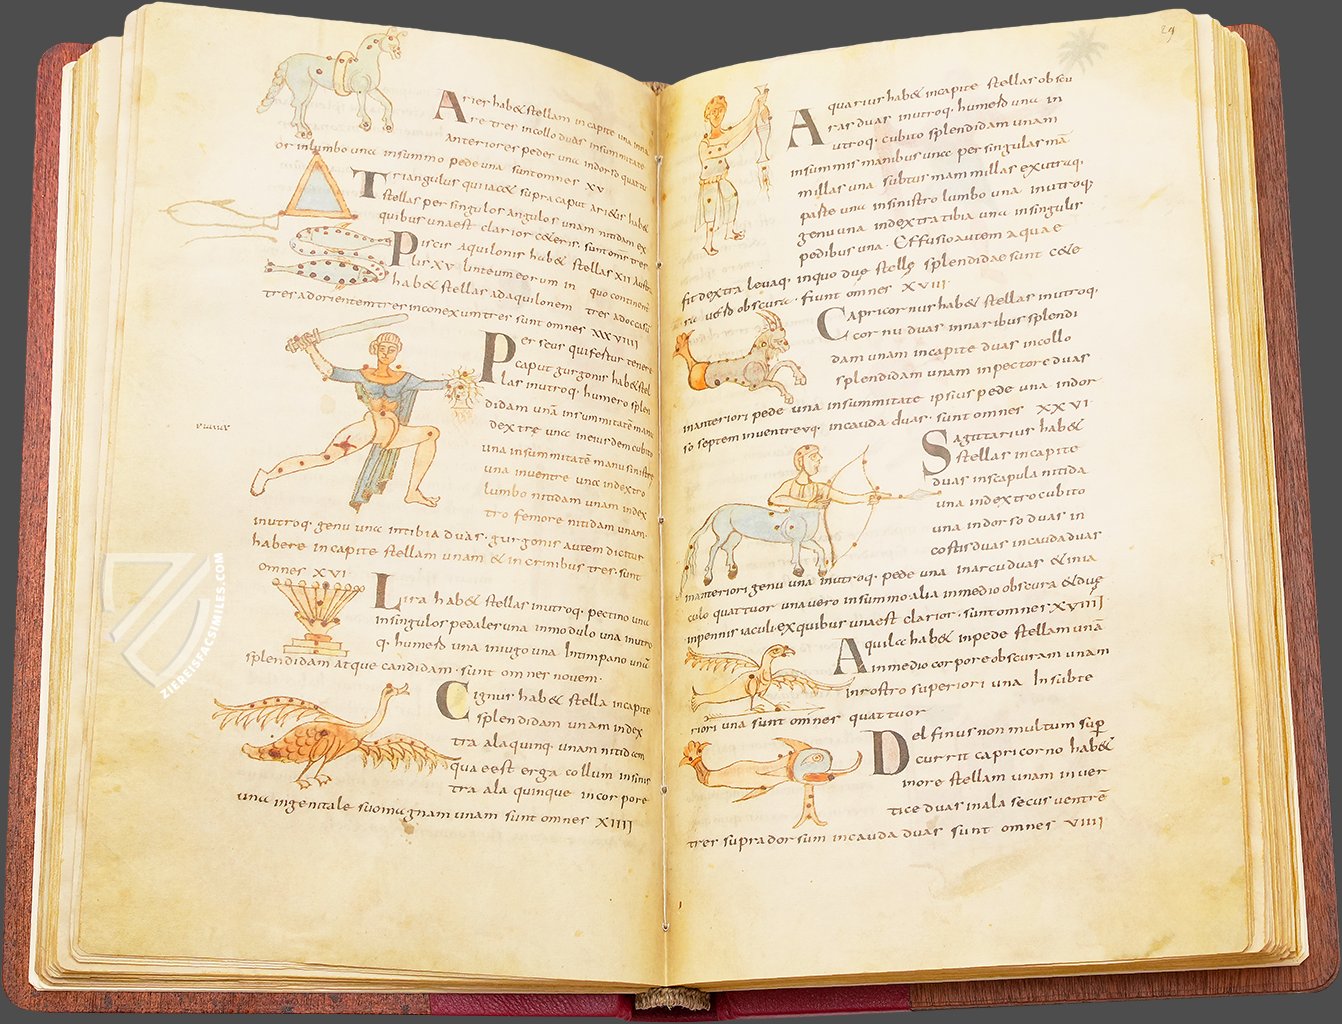 Aries hab& stellam in capite una inna
re tres in collo duas in summitate
anteriores pedes una in dorso quattu
or in lumbo una in summo pede una sunt omnes XV
Triangulus qui iac& supra caput ari&is hab&
stellas per singulos angulos unam nitidam ex
quibus una est clarior c&eris sunt omnes tres
Piscis Aquilonis hab& stellas XII Austri
hab& stellas ad aquilonem tres ad occasū
tres ad orientem tres in conexum tres sunt omnes XXXVIIII
Perseus
caput gurgonis hab& stel
las in utroq. humero splen
didam unā in summitate manu
dextre una in eiusdem cubito
una in summitatē manu sinistre
una in ventre una in dextro
lumbo nitidam unam in dex
tro femore nitidam unam
in utroq genu una in tibia duas gurgonis autem dicitur
habere in capite stellam unam & in crinibus tres sunt
omnes XVI
Lira hab& stellas in utroq. pectino una
in singulos una in modulo una in utro
q. humero una in iugo una In timpano unā
splendidam atque candidam sunt omnes novem
Cignus hab& stella in capite
splendidam unam in dex
tra ala quinq. unam nitidam
qua e est erga collum in sinis
tra ala quinque in corpore
una in genitale suo magnam unam sunt omnes XIIII
29
Aquarius hab& in capite stellas obscu
ras duas in utroq. humero una in
utroq. cubito splendidam unam
in summis manibus una per singulas mā
millas una subtus mammillas ex utraq.
parte una in sinistro lumbo una in utroq.
genu una in dextra tibia una in singulis
pedibus una Effusio autem aquae
fit dextra levaq. in quo duę stellę splendidae sunt c&e
rę obscura fiunt omnes XVIII
Capricornus hab& stellas in utroq.
cornu duas in naribus splendi
dam unam in capite duas in collo
splendidam unam in pectore duas
in anteriori pede una in summitate ipsius pede una in dor
so septem in ventre VII. in cauda duas sunt omnes XXVI
Sagittarius hab&
stellas in capite
duas in scapula nitida
una in dextro cubito
una in dorso duas in
costis duas in cauda duas
in anteriori genu una in utroq. pede una in arcu duas & in ia
culo quattuor una vero in summo alia in medio obscura & duę
in pennis iaculi ex quibus una est clarior sunt omnes XVIIII
Aquila hab& in pede stellam unā
in medio corpore obscuram unam
in rostro superiori una In subte
riori una sunt omnes quattuor
Delfinus non multum supra
currit capricorno hab&
in ore stellam unam in ver
tice duas in ala secus ventrē
tres supra dorsum in cauda duas sunt omnes VIIII
ZIEREISFACSIMILES.COM